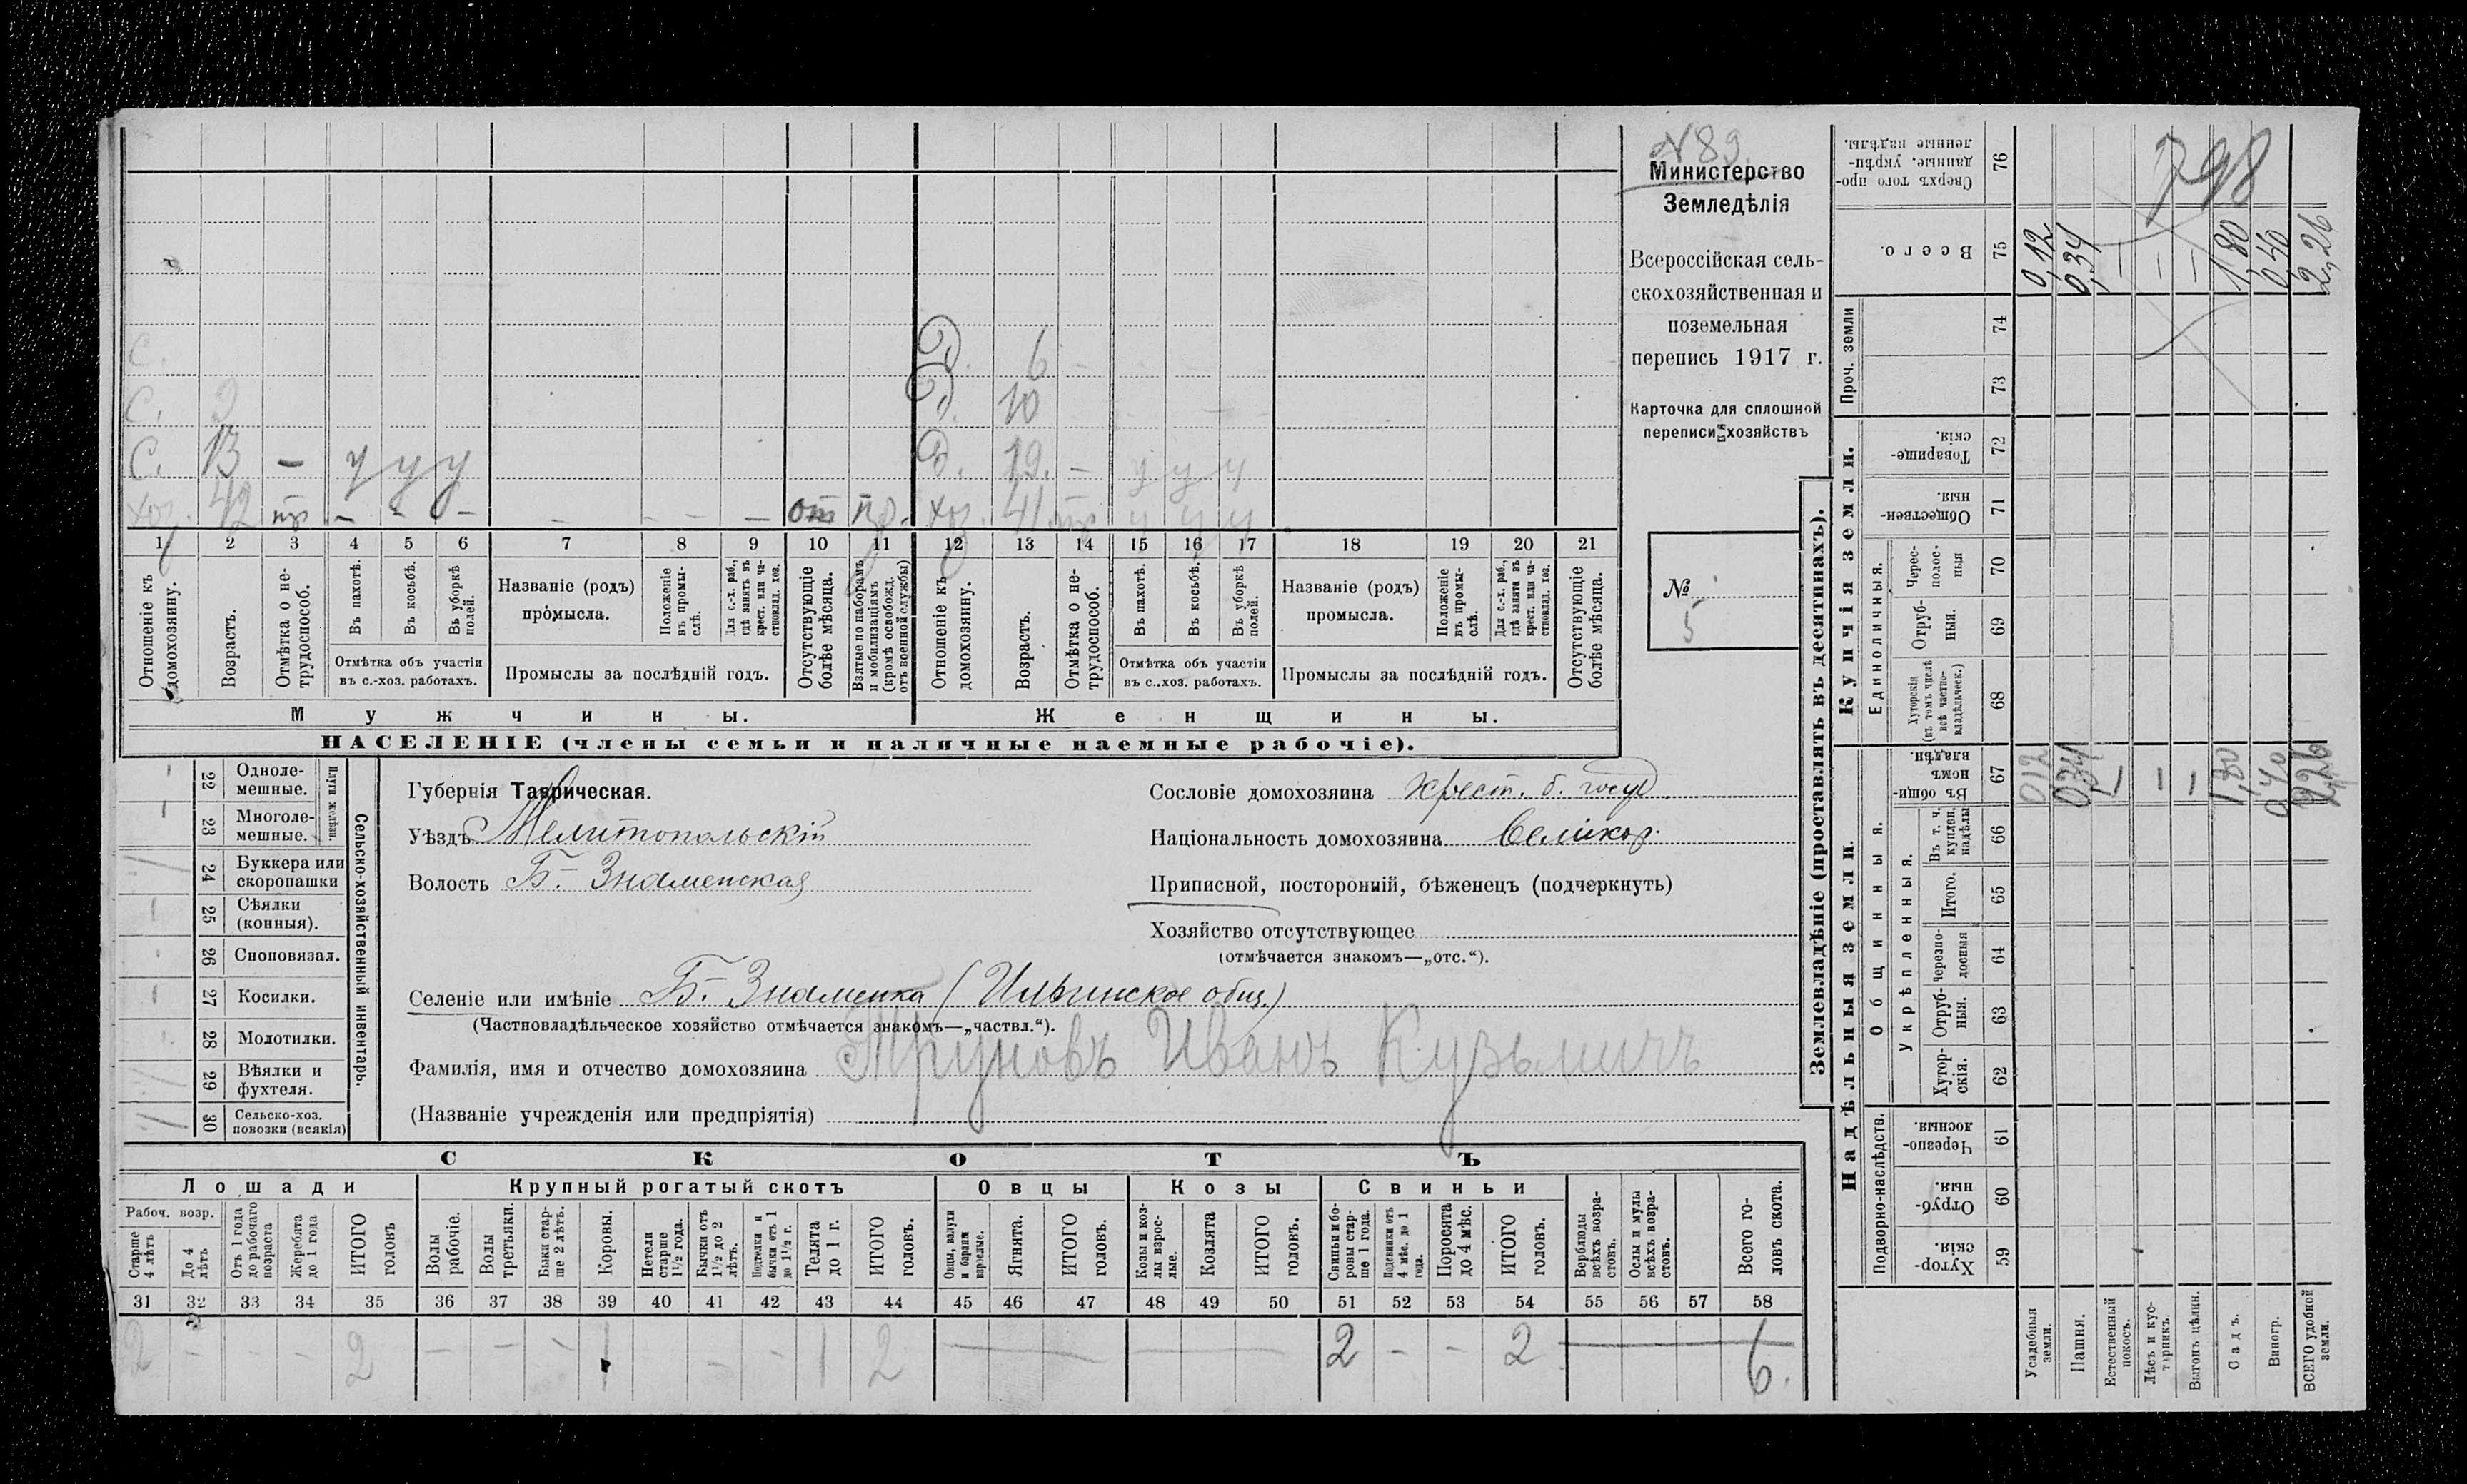 № 89.
Министерство
Земледѣлія
Всероссійская сель-
скохозяйственная и
поземельная
перепись 1917 г.
Карточка для сплошной
переписи хозяйствъ
№
5
798
С.
С. 9
С. 13 — у у у
хоз. 42 — — — — — — — от
Д. 6 —
Д. 10
д. 19. — у у у
хоз. 41 у у у
1 2 3 4 5 6 7 8 9 10 11 12 13 14 15 16 17 18 19 20 21
Отношеніе къ домохозяину.
Возрастъ.
Отмѣтка о не-трудоспособ.
Въ пахотѣ.
Въ косьбѣ.
Въ уборкѣ полей.
Отмѣтка объ участіи
въ с.-хоз. работахъ.
Названіе (родъ)
промысла.
Положеніе въ промы-слѣ.
Для с.-х. раб., гдѣ занятъ въ крест. или ча-стновлад. хоз.
Промыслы за послѣдній годъ.
Отсутствующіе болѣе мѣсяца.
Взятые по наборамъ и мобилизаціямъ (кромѣ освобожд. отъ военной службы)
Отношеніе къ домохозяину.
Возрастъ.
Отмѣтка о не-трудоспособ.
Въ пахотѣ.
Въ косьбѣ.
Въ уборкѣ полей.
Отмѣтка объ участіи
въ с.-хоз. работахъ.
Названіе (родъ)
промысла.
Положеніе въ промы-слѣ.
Для с.-х. раб., гдѣ занята въ крест. или ча-стновлад. хоз.
Промыслы за послѣдній годъ.
Отсутствующіе болѣе мѣсяца.
Мужчины.
Женщины.
НАСЕЛЕНІЕ (члены семьи и наличные наемные рабочіе).
22 Одноле-мешные.
23 Многоле-мешные.
Плуги желѣзн.
24 Буккера или скоропашки
25 Сѣялки (конныя).
26 Сноповязал.
27 Косилки.
28 Молотилки.
29 Вѣялки и фухтеля.
30 Сельско-хоз. повозки (всякія)
Сельско-хозяйственный инвентарь.
Губернія Таврическая.
Уѣздъ Мелитопольскій
Волость Б.- Знаменская
Сословіе домохозяина крест. б. госуд.
Національность домохозяина Великор.
Приписной, посторонній, бѣженецъ (подчеркнуть)
Хозяйство отсутствующее
(отмѣчается знакомъ—„отс.“).
Селеніе или имѣніе Б.- Знаменка (Ильинское общ.)
(Частновладѣльческое хозяйство отмѣчается знакомъ—„частвл.“).
Фамилія, имя и отчество домохозяина Труновъ Иванъ Кузьмичъ
(Названіе учрежденія или предпріятія)
СКОТЪ
Лошади
Крупный рогатый скотъ
Овцы
Козы
Свиньи
Рабоч. возр.
Старше 4 лѣтъ
До 4 лѣтъ
Отъ 1 года до рабочаго возраста
Жеребята до 1 года
ИТОГО головъ
Волы рабочіе.
Волы третьяки.
Быки стар-ше 2 лѣтъ.
Коровы.
Нетели старше 1½ года.
Бычки отъ 1½ до 2 лѣтъ.
Подтелки и бычки отъ 1 до 1½ г.
Телята до 1 г.
ИТОГО головъ.
Овцы, валухи и бараны взрослые.
Ягнята.
ИТОГО головъ.
Козы и коз-лы взрос-лые.
Козлята
ИТОГО головъ.
Свиньи и бо-ровы стар-ше 1 года.
Подсвинки отъ 4 мѣс. до 1 года.
Поросята до 4 мѣс.
ИТОГО головъ.
Верблюды всѣхъ возра-стовъ.
Ослы и мулы всѣхъ возра-стовъ.
Всего го-ловъ скота.
31 32 33 34 35 36 37 38 39 40 41 42 43 44 45 46 47 48 49 50 51 52 53 54 55 56 57 58
2 — — — 2 — — — 1 — — 1 2 — — 2 — — 2 — 6.
Землевладѣніе (проставлять въ десятинахъ).
Надѣльныя земли.
Купчія земли.
Проч. земли
Подворно-наслѣдств.
Общинныя.
Укрѣпленныя.
Единоличныя.
59 Хутор-скія.
60 Отруб-ныя.
61 Черезпо-лосныя.
62 Хутор-скія.
63 Отруб-ныя.
64 Черезпо-лосныя
65 Итого.
66 Въ т. ч. куплен. надѣлы
67 Въ общи-номъ владѣн.
68 Хуторскія (въ томъ числѣ всѣ частно-владѣльческ.)
69 Отруб-ныя.
70 Черес-полос-ныя
71 Обществен-ныя.
72 Товарище-скія.
73
74
75 Всего.
76 Сверхъ того про-данные, укрѣп-ленные надѣлы.
Усадебныя земли. 0,12 0,12
Пашня. 0,34 0,34
Естественный покосъ. — —
Лѣсъ и кус-тарникъ. — —
Выгонъ цѣлин. — —
Садъ. 1,80 1,80
Виногр. 0,40 0,40
ВСЕГО удобной земли. 2,26 2,26